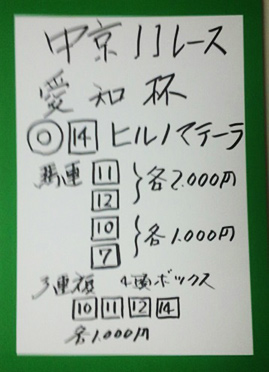 中京11レース
愛知杯
◎ 14 ヒルノマテーラ
馬連 11 } 各2.000円
12
10 } 各1.000円
7
3連複 4頭ボックス
10 11 12 14
各1.000円